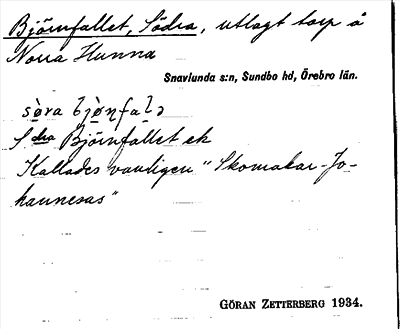 Björnfallet, Södra, utlagt torp å
Norra Hunna
Snavlunda s:n, Sundbo hd, Örebro län.
Sdra Björnfallet ek
Kallades vanligen "Skomakar-Jo-
hannesas"
GÖRAN ZETTERBERG 1934.